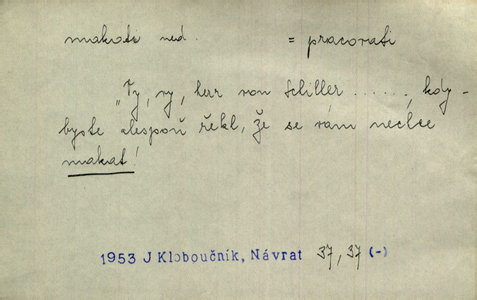 makati ned. = pracovati
„Vy, vy, herr von Schiller ......, kdy-
byste alespoň řekl, že se vám nechce
makat!
1953 J Kloboučník, Návrat 37, 37 (-)